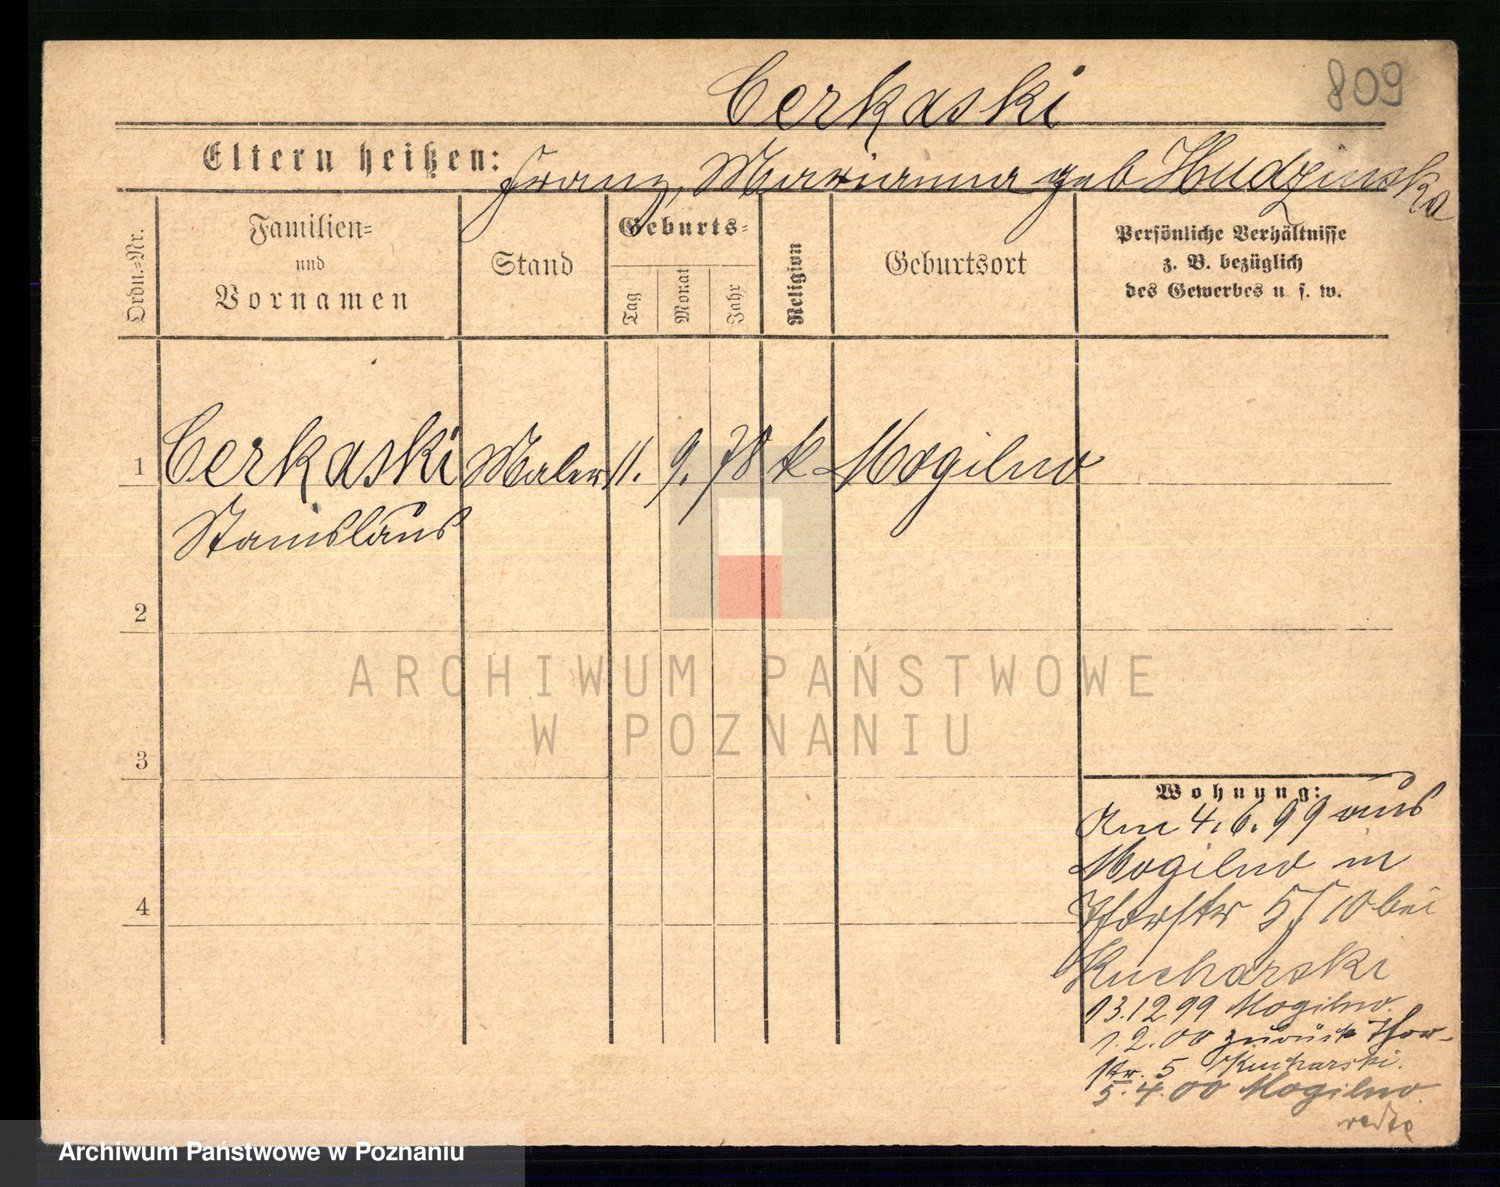 Cerkaski
809
Eltern heißen: Franz, Marianna geb Hudzinska
Ordn.-Nr.
Familien-
und
Vornamen
Stand
Geburts-
Tag
Monat
Jahr
Religion
Geburtsort
Persönliche Verhältnisse
z. B. bezüglich
des Gewerbes u. s. w.
1 Cerkaski Maler 11. 9. 78 k Mogilno
Stanislaus
2
3
4
ARCHIWUM PAŃSTWOWE
W POZNANIU
Wohnung:
Am 4. 6. 99 aus
Mogilno in
5/10 bei
Kucharski
13.12 99 Mogilno.
1. 2. 00 zurück Thor-
str. 5 Kucharski.
5. 4. 00 Mogilno
Archiwum Państwowe w Poznaniu